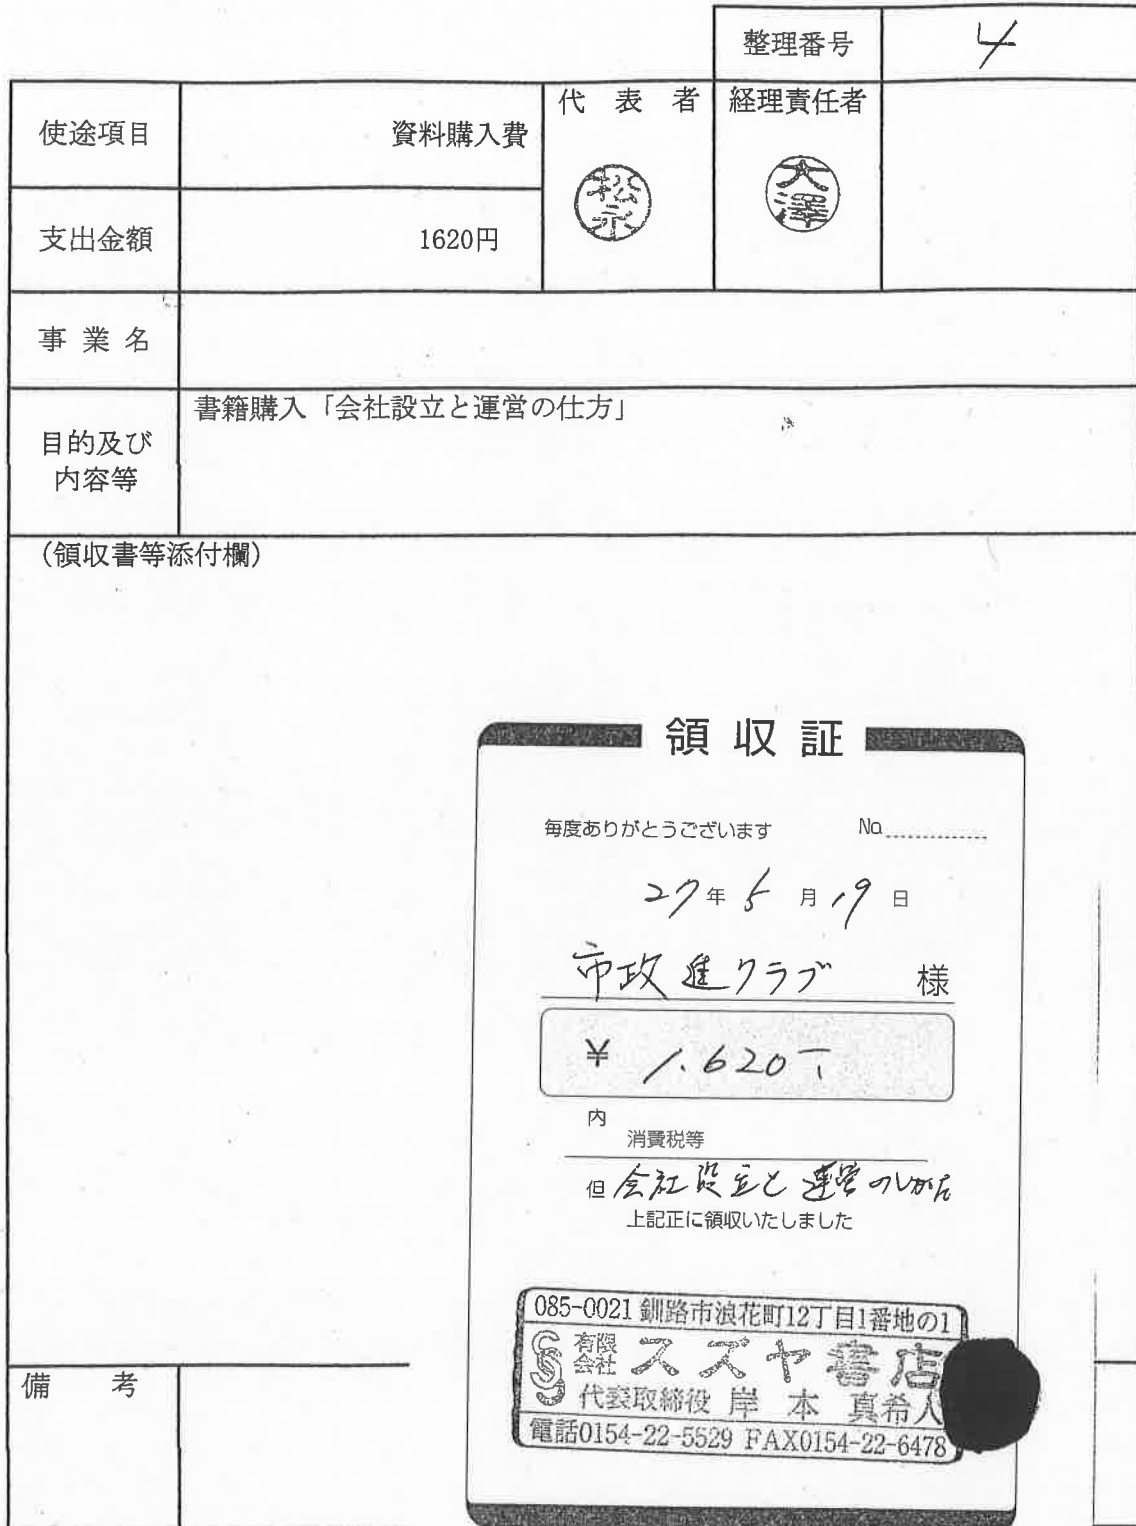 整理番号 4
代表者 経理責任者
使途項目 資料購入費
松永 大澤
支出金額 1620円
事業名
目的及び
内容等
書籍購入「会社設立と運営の仕方」
(領収書等添付欄)
領収証
毎度ありがとうございます No
27年5月19日
市政進クラブ 様
¥ 1.620
内
消費税等
但 会社設立と運営のしかた
上記正に領収いたしました
085-0021 釧路市浪花町12丁目1番地の1
有限会社 スズヤ書店
代表取締役 岸本 真希人
電話0154-22-5529 FAX0154-22-6478
備考